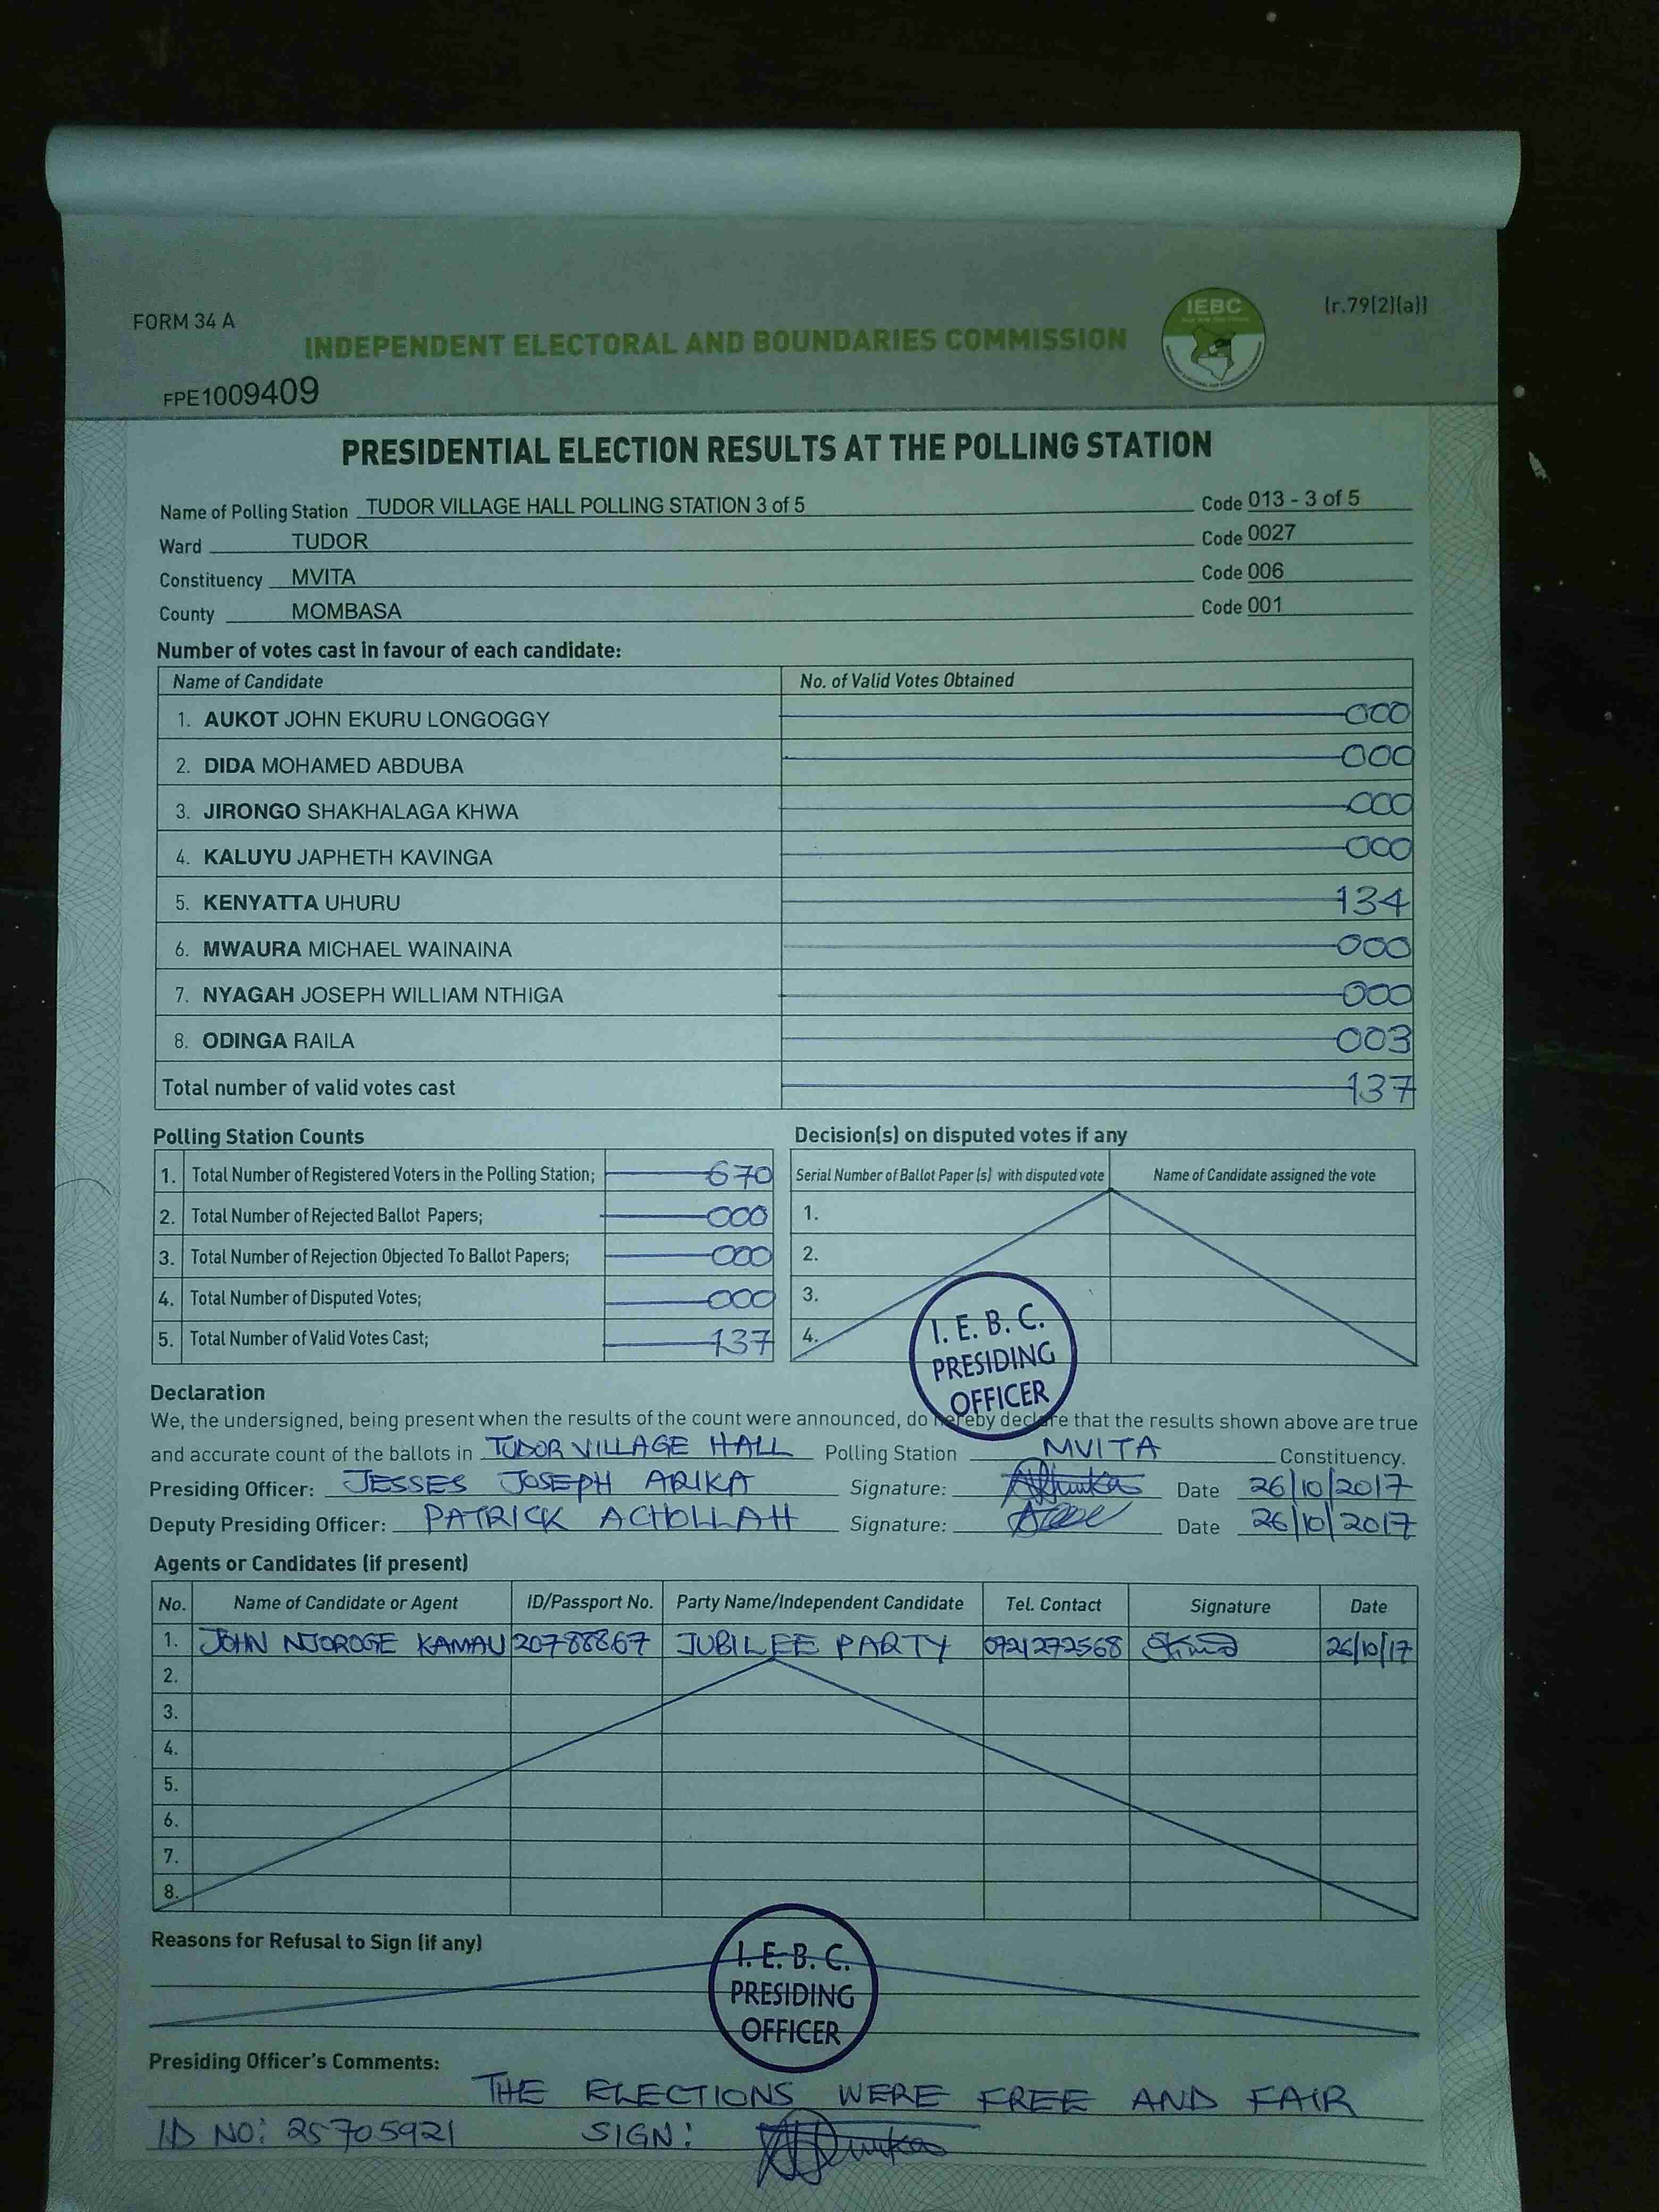 FORM 34 A
(r.79(2)(a))
IEBC
INDEPENDENT ELECTORAL AND BOUNDARIES COMMISSION
FPE1009409
PRESIDENTIAL ELECTION RESULTS AT THE POLLING STATION
Name of Polling Station TUDOR VILLAGE HALL POLLING STATION 3 of 5 Code 013 - 3 of 5
Ward TUDOR Code 0027
Constituency MVITA Code 006
County MOMBASA Code 001
Number of votes cast in favour of each candidate:
Name of Candidate No. of Valid Votes Obtained
1. AUKOT JOHN EKURU LONGOGGY 000
2. DIDA MOHAMED ABDUBA 000
3. JIRONGO SHAKHALAGA KHWA 000
4. KALUYU JAPHETH KAVINGA 000
5. KENYATTA UHURU 134
6. MWAURA MICHAEL WAINAINA 000
7. NYAGAH JOSEPH WILLIAM NTHIGA 000
8. ODINGA RAILA 003
Total number of valid votes cast 137
Polling Station Counts
1. Total Number of Registered Voters in the Polling Station; 670
2. Total Number of Rejected Ballot Papers; 000
3. Total Number of Rejection Objected To Ballot Papers; 000
4. Total Number of Disputed Votes; 000
5. Total Number of Valid Votes Cast; 137
Decision(s) on disputed votes if any
Serial Number of Ballot Paper (s) with disputed vote Name of Candidate assigned the vote
1.
2.
3.
4.
I. E. B. C.
PRESIDING
OFFICER
Declaration
We, the undersigned, being present when the results of the count were announced, do hereby declare that the results shown above are true
and accurate count of the ballots in TUDOR VILLAGE HALL Polling Station MVITA Constituency.
Presiding Officer: JESSES JOSEPH ARIKA Signature: Date 26/10/2017
Deputy Presiding Officer: PATRICK ACHOLLAH Signature: Date 26/10/2017
Agents or Candidates (if present)
No. Name of Candidate or Agent ID/Passport No. Party Name/Independent Candidate Tel. Contact Signature Date
1. JOHN NJOROGE KAMAU 20788867 JUBILEE PARTY 0721272568 26/10/17
2.
3.
4.
5.
6.
7.
8.
Reasons for Refusal to Sign (if any)
I. E. B. C.
PRESIDING
OFFICER
Presiding Officer's Comments:
THE ELECTIONS WERE FREE AND FAIR
ID NO: 25705921 SIGN: